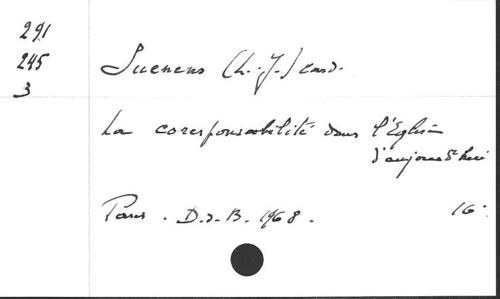 291
245
3
Suenens (L.-J.) card.
La coresponsabilité dans l'Eglise
d'aujourd'hui
Paris. D.d.B. 1968.
16°